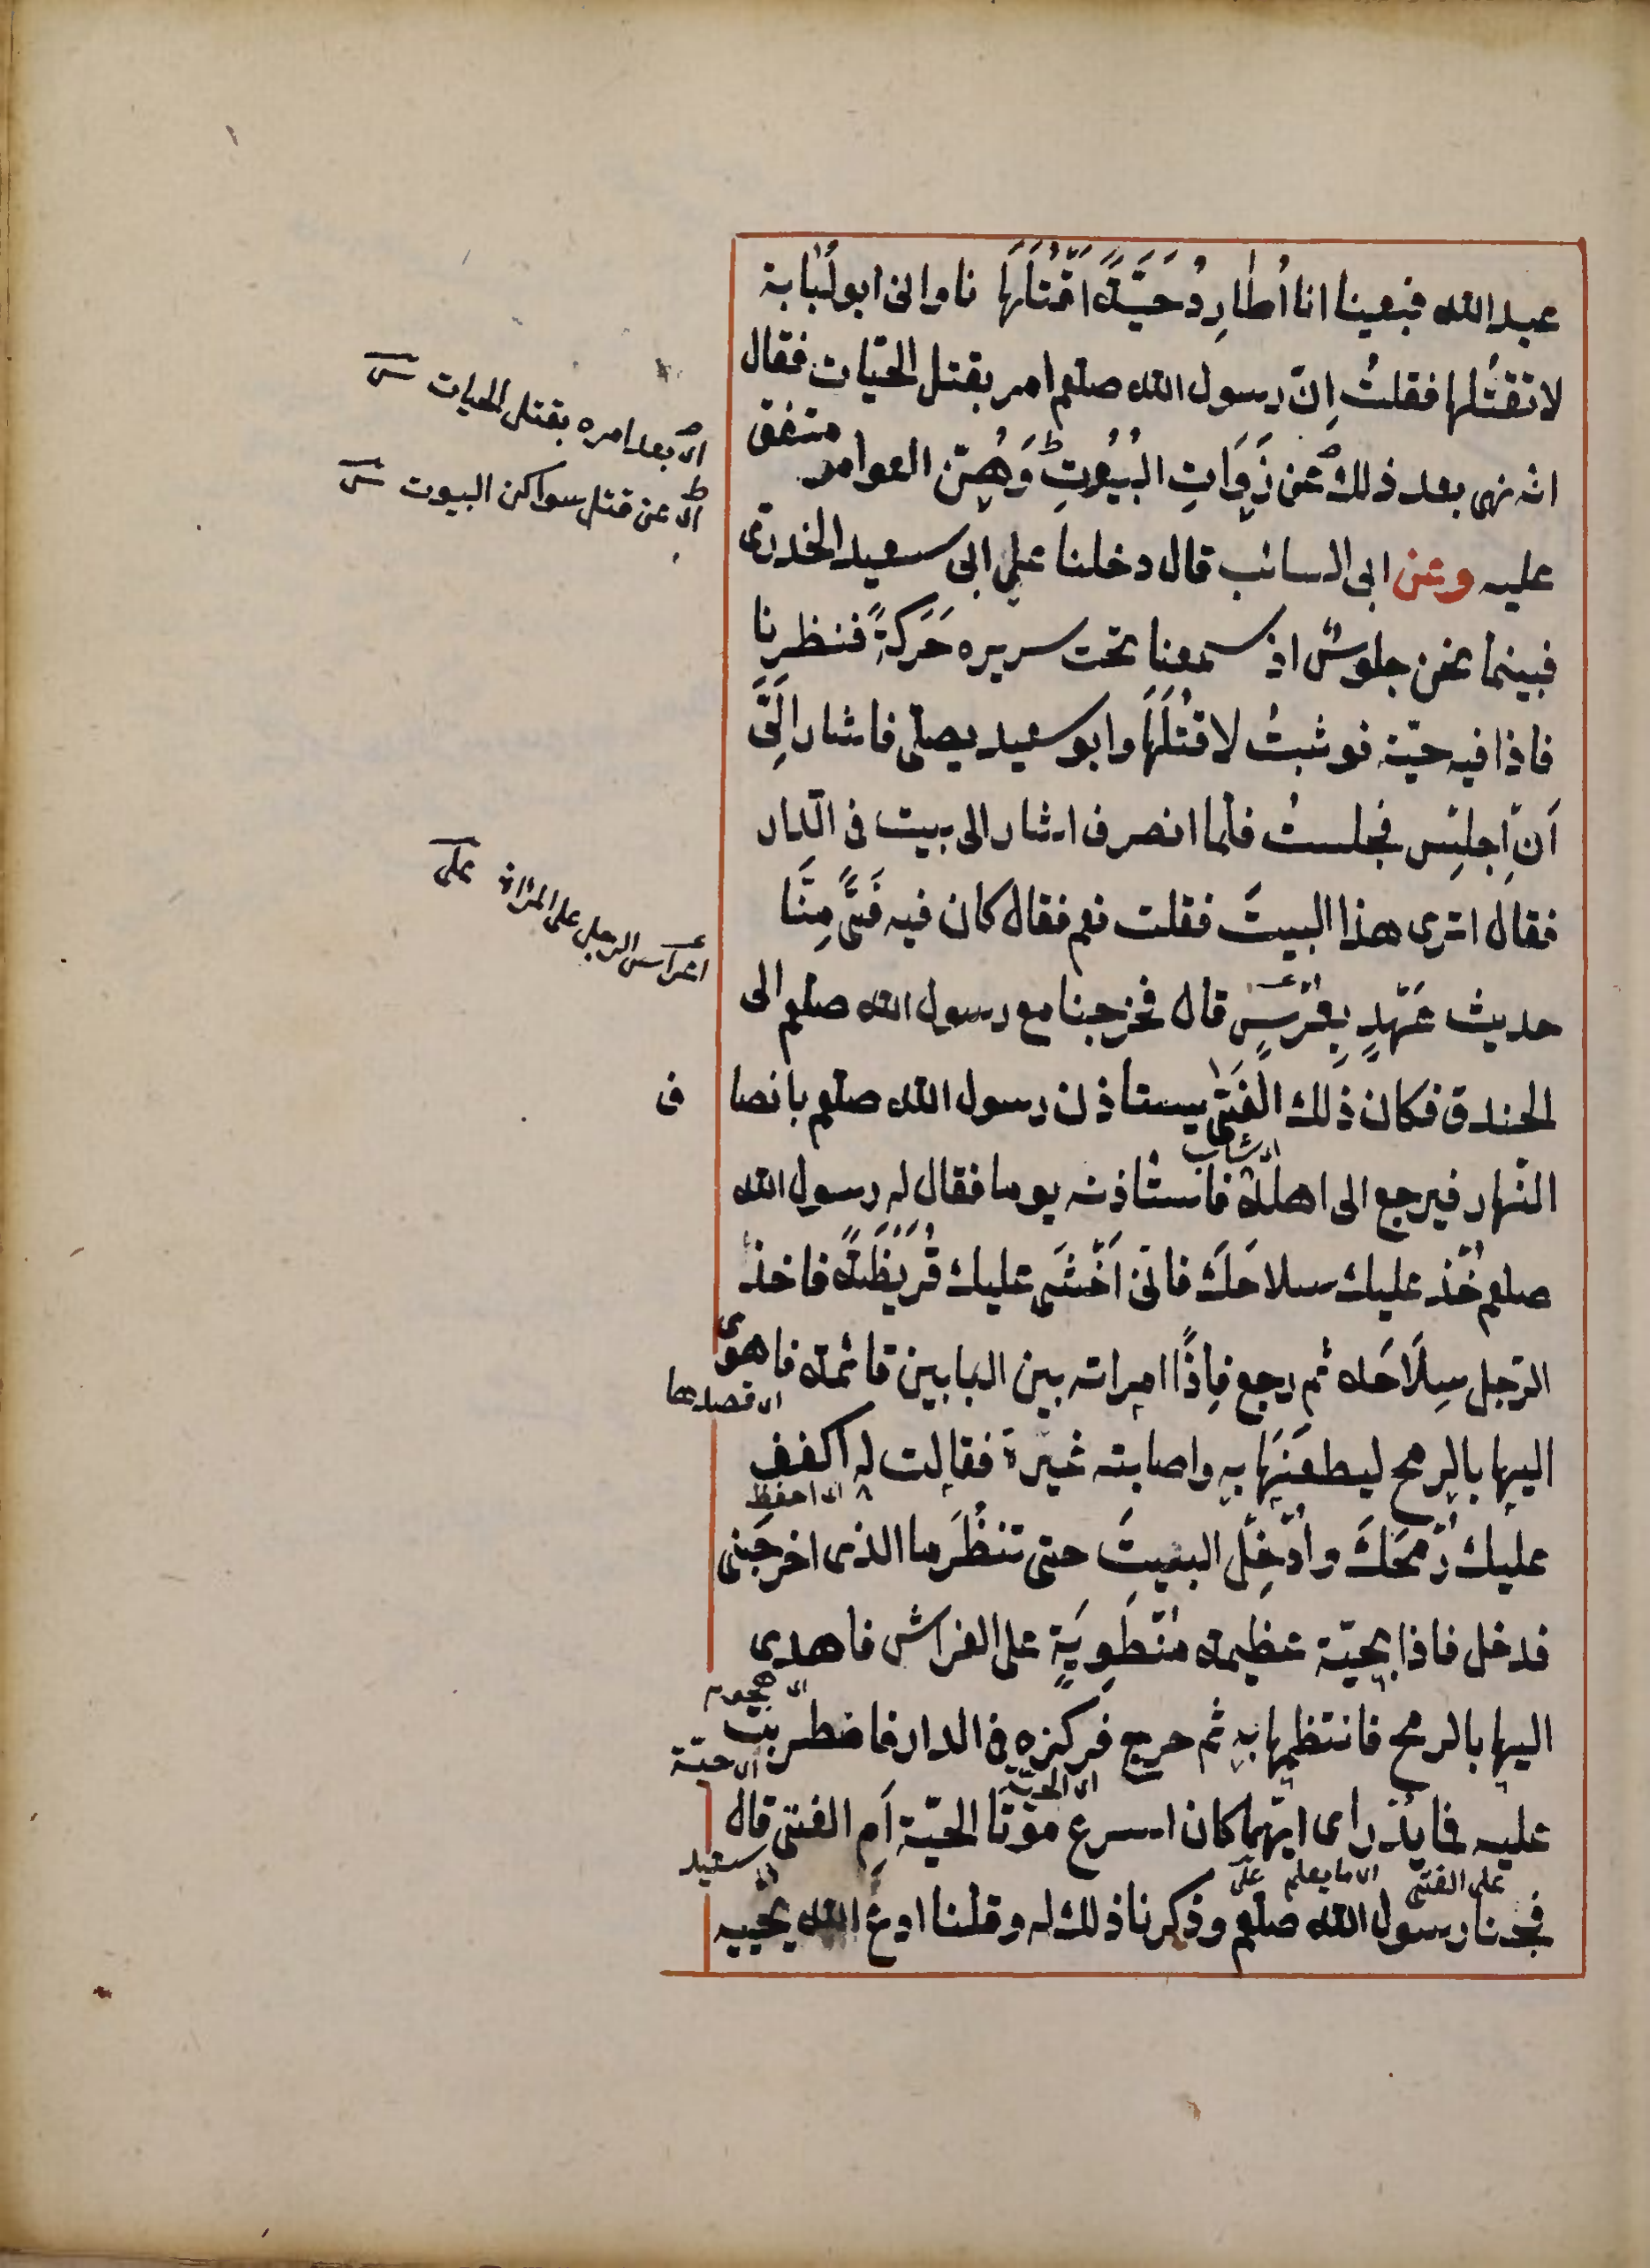 عبد الله فبعينا انا اُطارِدُ حَيَّةً اَقْتُلُهَا نادانى ابو لُبَابة
لا تقتُلها فقلتُ اِنّ رسول الله صلعم امر بقتل الحيّات فقال
انه نهى بعد ذلك عن ذَوَاتِ البُيُوتِ وَهُنّ العوامر متفق
عليه وعن ابى السائب قال دخلنا على ابى سعيد الخدرى
فبينما نحن جلوسٌ اذ سمعنا تحت سريره حَرَكَةً فنظرنا
فاذا فيه حيّة فوثبتُ لاقتُلَهَا وابو سعيد يصلى فاشار اِلَىَّ
اَنِ اجلِسْ فجلستُ فلما انصرف اشار الى بيت فى الدار
فقال اترى هذا البيتَ فقلت نعم فقال كان فيه فَتًى مِنَّا
حديث عَهْدٍ بِعُرْسٍ قال فخرجنا مع رسول الله صلعم الى
الخندق فكان ذلك الفَتَى يستاذن رسول الله صلعم بانصا ف
اى شاب
النّهار فيرجع الى اهله فاستاذنه يوما فقال له رسول الله
صلعم خُذ عليك سلاحَكَ فانى اَخْشَى عليك قُرَيْظَةً فاخذ
الرّجل سِلَاحَه ثم رجع فاِذًا امراته بين البابين قائمة فاهوى
اى قصدها
اليها بالرمح ليطعَنَهَا به واصابته غيرة فقالت له اكفف
اى احفظ
عليك رُمْحَكَ وادْخُلِ البيتَ حتى تنظُرَ ما الذى اخرجَنى
فدخل فاذا بحيّة عظيمة مُنْطَوِيَةٍ على الفراش فاهدى
اى هجوم
اليها بالرمح فانتظمها به ثم خرج فركزه فى الدار فاضطربت
اى حيّة
اى الحيّة
عليه فما يُدْراى ايّهما كان اسرع مَوْتًا الحيّة اَم الفتى قال
سعيد
على الفتى اى ما يعلم على
فجئنا رسول الله صلعم وذكرنا ذلك له وقلنا ادع الله يحييه
اى بعد امره بقتل الحيات
اى عن قتل سواكن البيوت
اعراس الرجل على المراة على